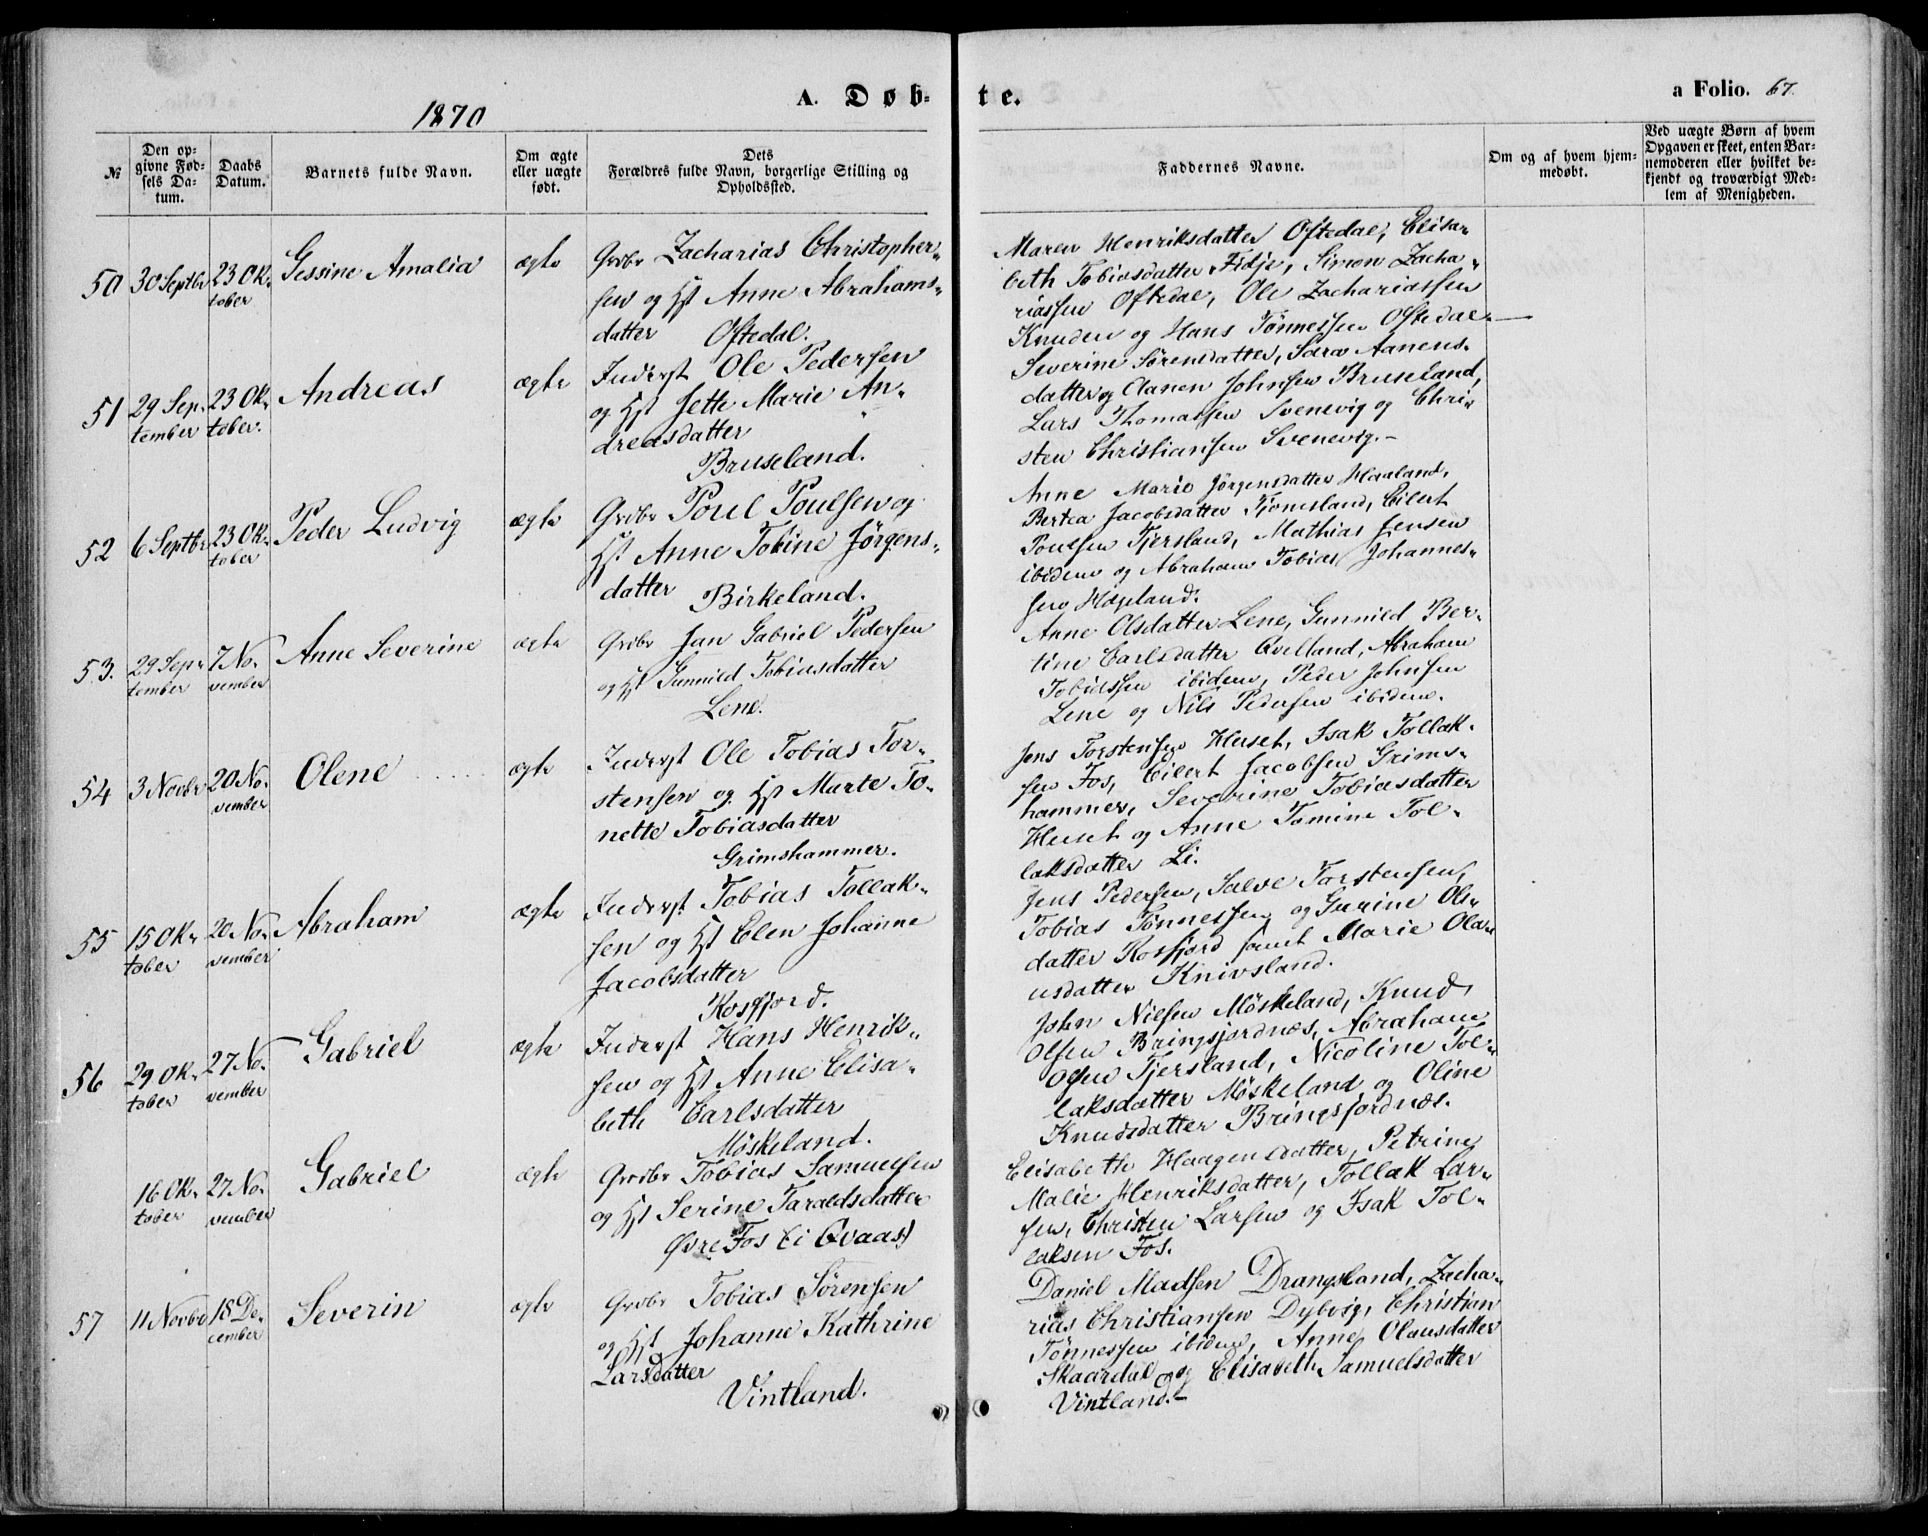 1870
A. Døb-
te.
a Folio. 67.
№
Den op-
givne Fød-
sels Da-
tum.
Daabs
Datum.
Barnets fulde Navn.
Om ægte
eller uægte
født.
Dets
Forældres fulde Navn, borgerlige Stilling og
Opholdssted.
Faddernes Navne.
Om og af hvem hjem-
medøbt.
Ved uægte Børn af hvem
Opgaven er skeet, enten Bar-
nemoderen eller hvilket be-
kjendt og troværdigt Med-
lem af Menigheden.
50
30 Septbr
23 Ok-
tober
Gessine Amalia
ægte
Grdbr Zacharias Christopher-
sen og Hst Anne Abrahams-
datter Oftedal.
Maren Henriksdatter Oftedal, Elisa-
beth Tobiasdatter Fidje, Simon Zacha-
riassen Oftedal, Ole Zachariassen
Knuden og Hans Tönnessen Oftedal.
51
29 Sep-
tember
23 Ok-
tober.
Andreas
ægte
Inderst Ole Pedersen
og Hst Jette Marie An-
dreasdatter
Bruseland.
Severine Sörensdatter, Sara Aanens-
datter og Aanen Johnsen Bruseland,
Lars Thomassen Svenevig og Chri-
sten Christiansen Svenevig.
52
6 Septbr
23 Ok-
tober
Peder Ludvig
ægte
Grdbr Poul Poulsen og
Hst Anne Tobine Jørgens-
datter Birkeland.
Anne Marie Jörgensdatter Haaland,
Bertea Jacobsdatter Tjomsland, Eilert
Poulsen Tjersland, Mathias Jensen
ibidem og Abraham Tobias Johannes-
sen Hægeland.
53.
29 Sep-
tember
7 No-
vember
Anne Severine
ægte
Grdbr Jan Gabriel Pedersen
og Hst Gunnild Tobiasdatter
Lene.
Anne Olsdatter Lene, Gunnild Ber-
tine Carlsdatter Qvelland, Abraham
Tobiassen ibidem, Peder Johnsen
Lene og Nils Pedersen ibidem.
54
3 Novbr
20 No-
vember
Olene
ægte
Inderst Ole Tobias Tor-
stensen og Hst Marte To-
nette Tobiasdatter
Grimshammer.
Jens Torstensen Huset, Isak Tollak-
sen Fos, Eilert Jacobsen Grims-
hammer, Severine Tobiasdatter
Huset og Anne Tomine Tol-
laksdatter Li.
55
15 Ok-
tober
20 No-
vember
Abraham
ægte
Inderst Tobias Tollak-
sen og Hst Elen Johanne
Jacobsdatter
Kosfjord.
Jens Pedersen, Salve Torstensen,
Tobias Tönnessen og Gurine Ols-
datter Kosfjord samt Marie Ola-
usdatter Knivsland.
56
29 Ok-
tober
27 No-
vember
Gabriel
ægte
Inderst Hans Henrik-
sen og Hst Anne Elisa-
beth Carlsdatter
Møskeland.
John Nilsen Møskeland, Knud
Olsen Bringsjordnæs, Abraham
Olsen Tjersland, Nicoline Tol-
laksdatter Møskeland og Oline
Knudsdatter Bringsjordnæs.
16 Ok-
tober
27 No-
vember
Gabriel
ægte
Grdbr Tobias Samuelsen
og Hst Serine Taraldsdatter
Øvre Fos (i Qvaas)
Elisabeth Haagensdatter, Petrine
Malie Henriksdatter, Tollak Lar-
sen, Christen Larsen og Isak Tol-
laksen Fos.
57
11 Novbr
18 De-
cember
Severin
ægte
Grdbr Tobias Sörensen
og Hst Johanne Kathrine
Larsdatter
Vintland.
Daniel Madsen Drangsland, Zacha-
rias Christiansen Dybvig, Christian
Tönnessen ibidem, Anne Olausdatter
Skaardal og Elisabeth Samuelsdatter
Vintland.